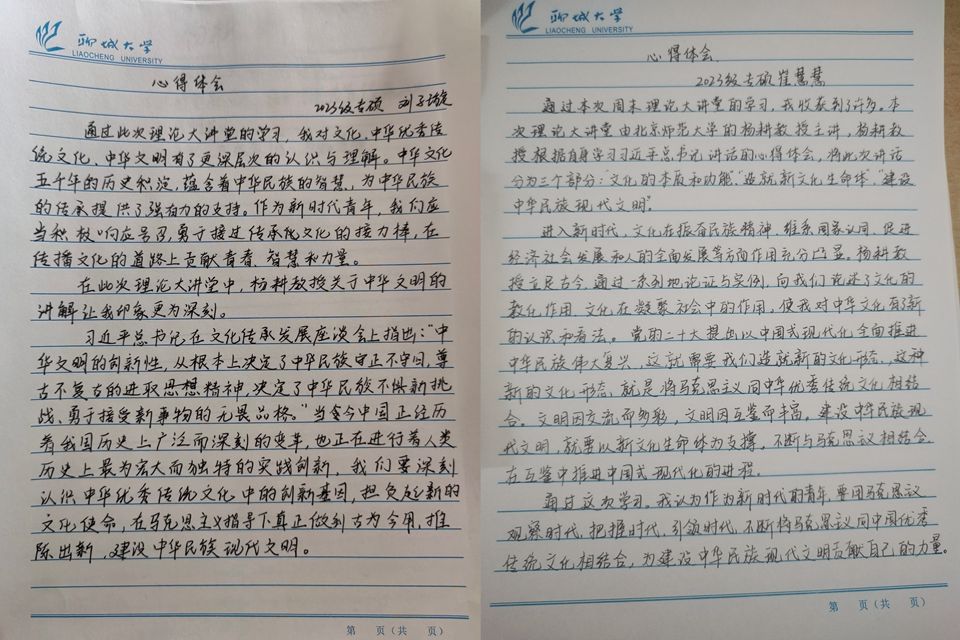 聊城大学
LIAOCHENG UNIVERSITY
心得体会
2023级专硕 刘子璇
通过此次理论大讲堂的学习，我对文化、中华优秀传
统文化、中华文明有了更深层次的认识与理解。中华文化
五千年的历史积淀，蕴含着中华民族的智慧，为中华民族
的传承提供了强有力的支持。作为新时代青年，我们应
当积极响应号召，勇于接过传承优文化的接力棒，在
传播文化的道路上贡献青春、智慧和力量。
在此次理论大讲学中，杨耕教授关于中华文明的
讲解让我印象更为深刻。
习近平总书记在文化传承发展座谈会上指出："中
华文明的创新性，从根本上决定了中华民族守正不守旧、尊
古不复古的进取思想精神，决定了中华民族不惧新挑
战、勇于接受新事物的无畏品格。"当今中国正经历
着我国历史上广泛而深刻的变革，也正在进行着人类
历史上最为宏大而独特的实践创新，我们要深刻
认识中华优秀传统文化中的创新基因，担负起新的
文化使命，在马克思主义指导下真正做到古为今用，推
陈出新，建设中华民族现代文明。
第 页（共 页）
聊城大学
LIAOCHENG UNIVERSITY
心得体会
2023级专硕 崔慧慧
通过本次周末理论大讲堂的学习，我收获到了许多。本
次理论大讲堂由北京师范大学的杨耕教授主讲，杨耕教
授根据自身学习习近平总书记讲话的心得体会，将此次讲话
分为三个部分："文化的本质和功能"、"造就新文化生命体"、"建设
中华民族现代文明"。
进入新时代，文化在振奋民族精神、维系国家认同、促进
经济社会发展和人的全面发展等方面作用充分凸显。杨耕教
授立足古今，通过一系列地论证与实例，向我们论述了文化的
教化作用，文化在凝聚社会中的作用，使我对中华文化有了新
的认识和看法。党的二十大提出以中国式现代化全面推进
中华民族伟大复兴，这就需要我们造就新的文化形态，这种
新的文化形态，就是将马克思主义同中华优秀传统文化相结
合。文明因交流而多彩，文明因互鉴而丰富，建设中华民族现
代文明，就要以新文化生命体为支撑，不断与马克思主义相结合，
在互鉴中推进中国式现代化的进程。
通过这次学习，我认为作为新时代的青年，要用马克思主义
观察时代、把握时代、引领时代，不断将马克思主义同中国优秀
传统文化相结合，为建设中华民族现代文明贡献自己的力量。
第 页（共 页）